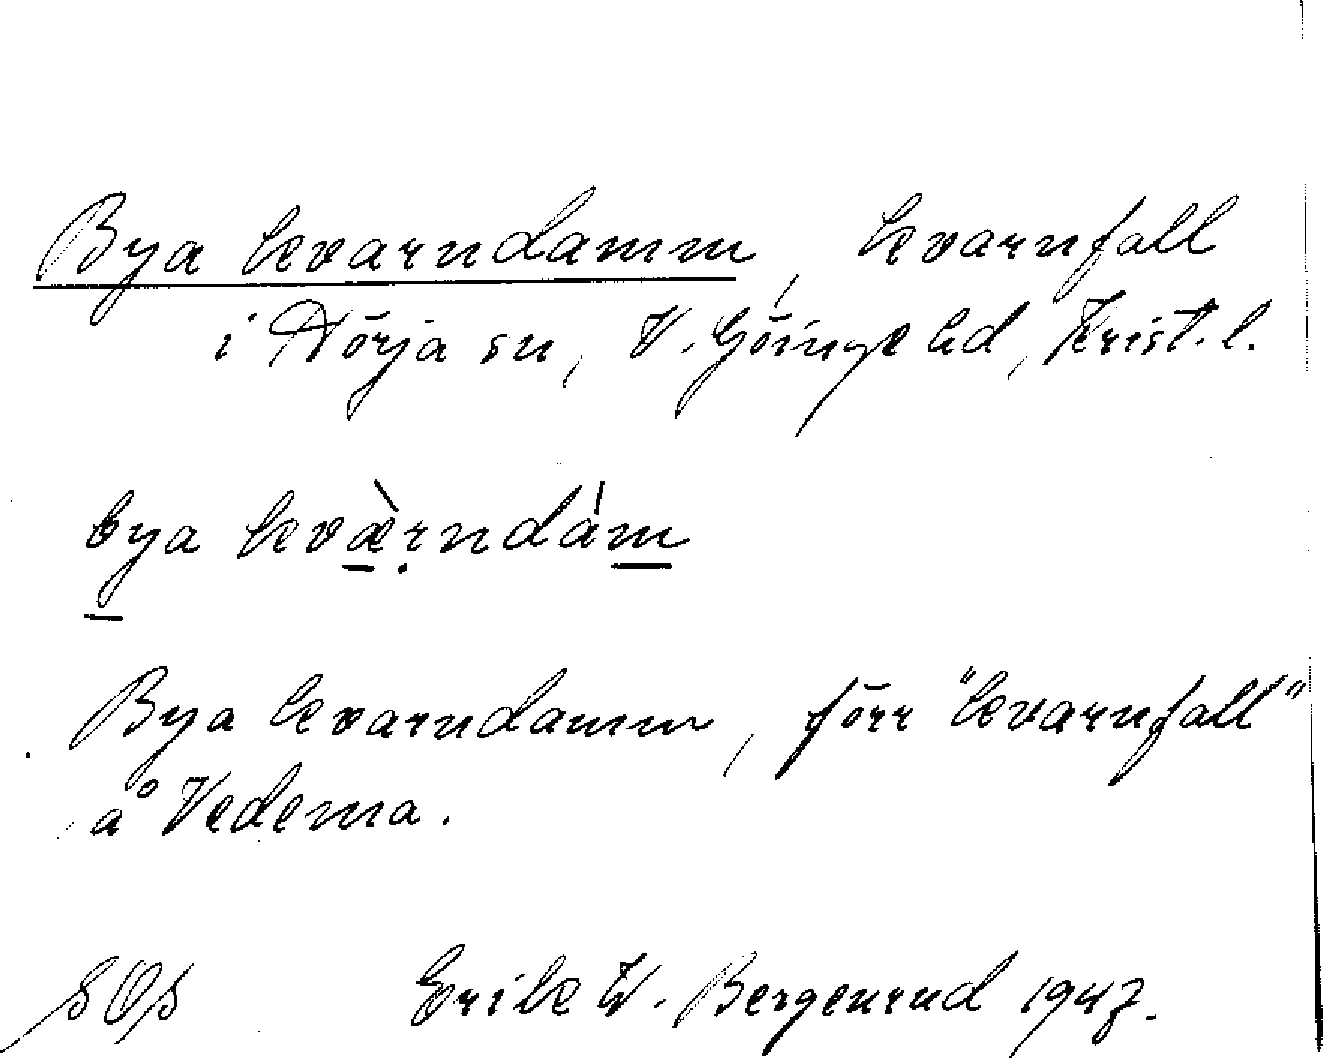 Bya kvarndamm, kvarnfall
i Nörja sn, V. Göinge hd, Krist. l.
bya kvæ̀rndám
Bya kvarndamm, förr "kvarnfall"
å Vedema.
SOS Erik W. Bergenrud 1947.